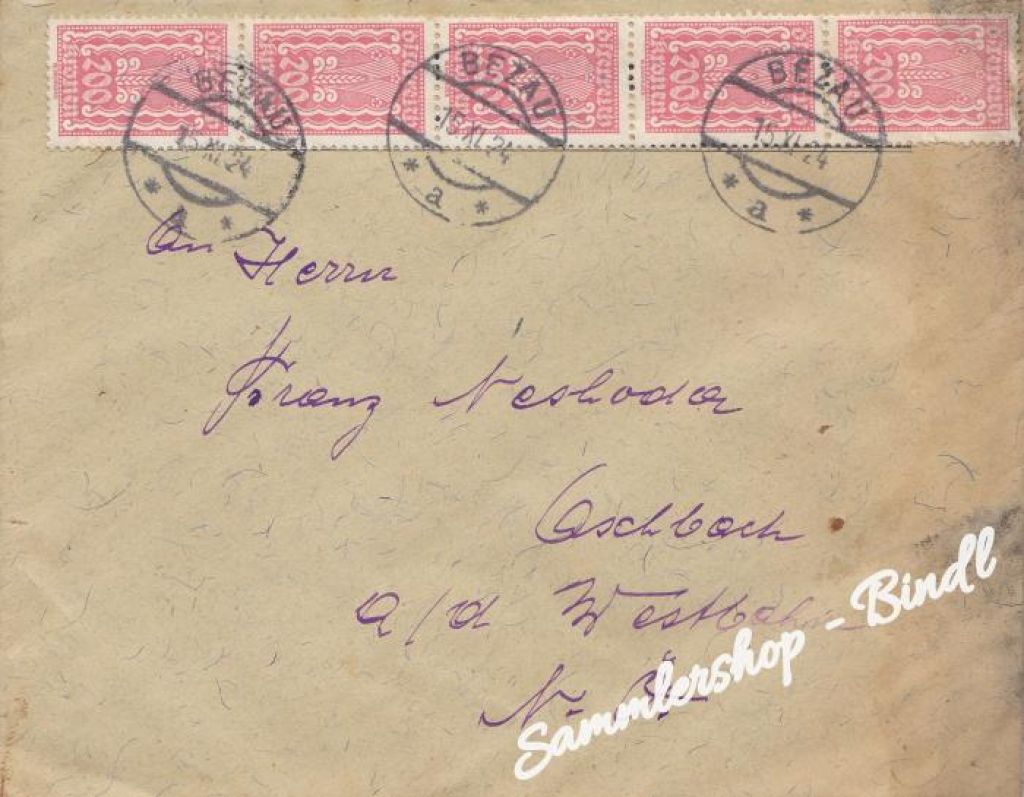 200 200 200 200 200
BEZAU BEZAU BEZAU
15.XI.24 15.XI.24 15.XI.24
a a a
An Herrn
Franz
Aschbach
a/d Westbahn
N.-Ö.
Sammlershop - Bindl